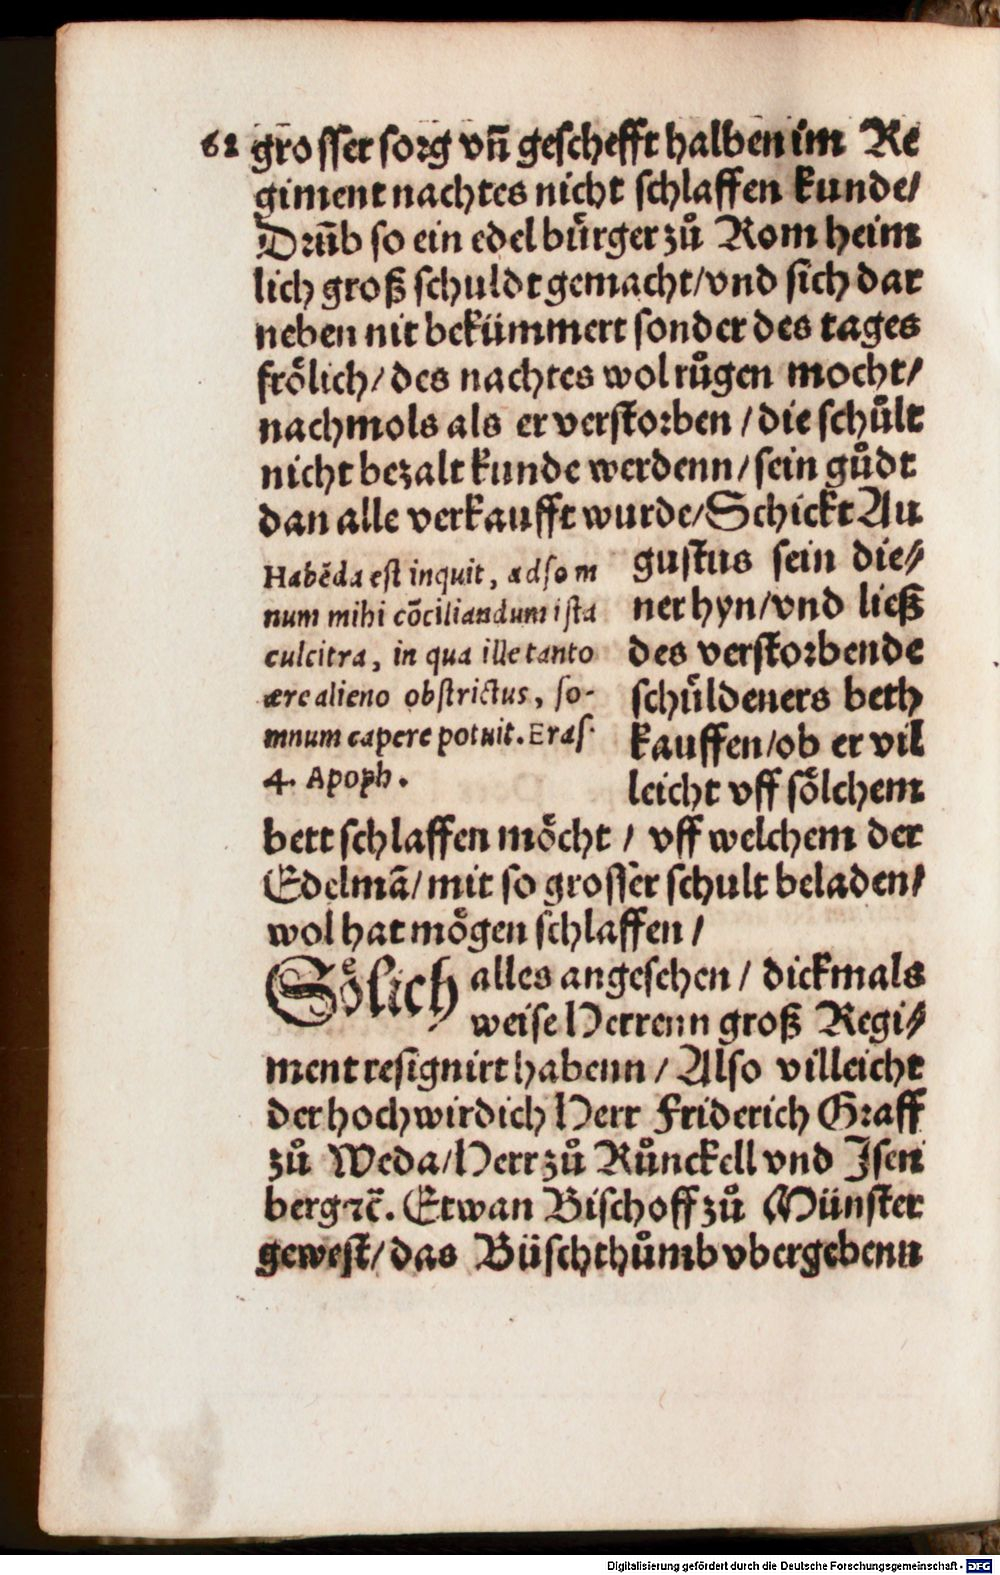 62 grosser sorg vñ geschefft halben im Re
giment nachtes nicht schlaffen kunde/
Drüb so ein edel bürger zů Rom heim
lich groß schuldt gemacht/vnd sich dar
neben nit bekümmert sonder des tages
frölich/ des nachtes wol růgen mocht/
nachmols als er verstorben / die schůlt
nicht bezalt kunde werdenn/sein gůdt
dan alle verkaufft wurde/Schickt Au
gustus sein die⸗
ner hyn/vnd ließ
des verstorbende
schüldeners beth
kauffen/ob er vil
leicht vff sölchem
Habēda est inquit, ad som
num mihi cōciliandum ista
culcitra, in qua ille tanto
ære alieno obstrictus, so-
mnum capere potuit. Eras.
4. Apoph.
bett schlaffen möcht / vff welchem der
Edelmā/ mit so grosser schult beladen/
wol hat mögen schlaffen /
Sölich alles angesehen / dickmals
weise Herrenn groß Regi⸗
ment resignirt habenn / Also villeicht
der hochwirdich Herr Friderich Graff
zů Weda/Herr zů Růnckell vnd Isen
berg ⁊c̄. Etwan Bischoff zů Münster
gewest/ das Büschthůmb vbergebenn
Digitalisierung gefördert durch die Deutsche Forschungsgemeinschaft - DFG